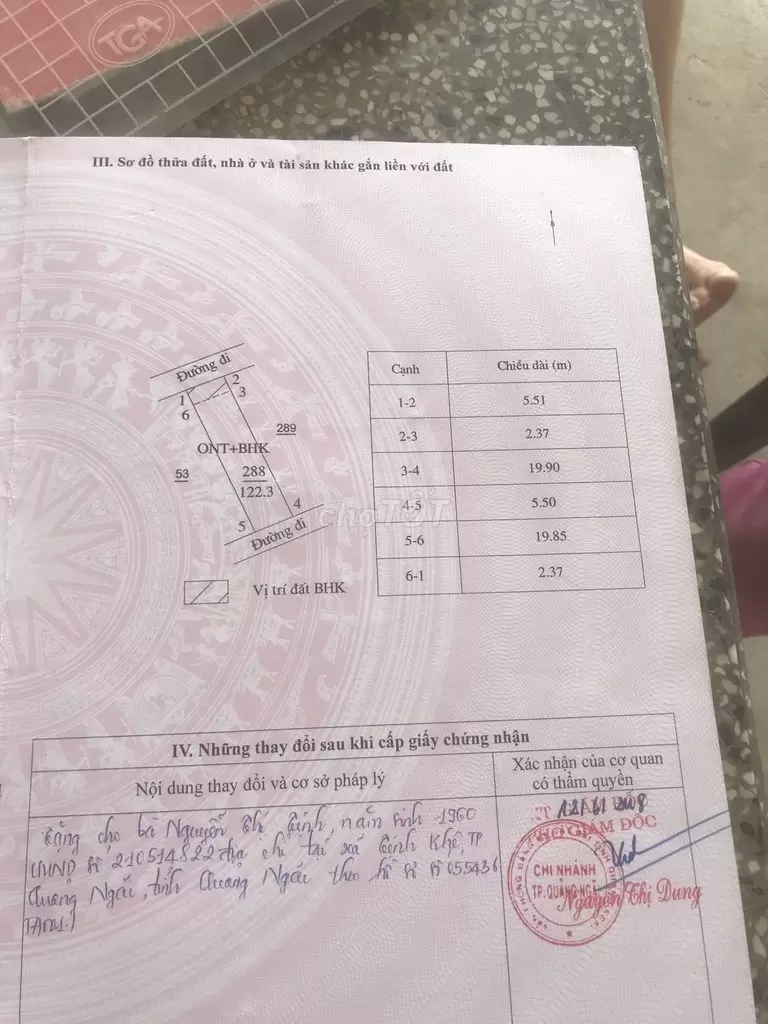 TGA
III. Sơ đồ thửa đất, nhà ở và tài sản khác gắn liền với đất
Đường đi
1
2
3
6
ONT+BHK
289
53
288
122.3
4
5
Đường đi
Vị trí đất BHK
Cạnh Chiều dài (m)
1-2 5.51
2-3 2.37
3-4 19.90
4-5 5.50
5-6 19.85
6-1 2.37
chợTỐT
IV. Những thay đổi sau khi cấp giấy chứng nhận
Nội dung thay đổi và cơ sở pháp lý
Xác nhận của cơ quan
có thẩm quyền
Tặng cho bà Nguyễn Thị, năm sinh 1960
CMND số 210514822 địa chỉ tại xã Tịnh Khê, TP
Quảng Ngãi, tỉnh Quảng Ngãi theo hồ sơ số 055436
GIÁM ĐỐC
CHI NHÁNH
TP.QUẢNG NGÃI
Nguyễn Thị Dung